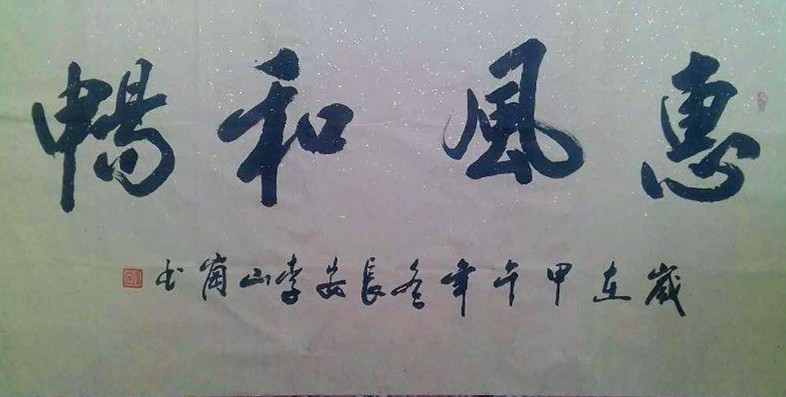 惠風和暢
歲在甲午年冬長安李山崗书